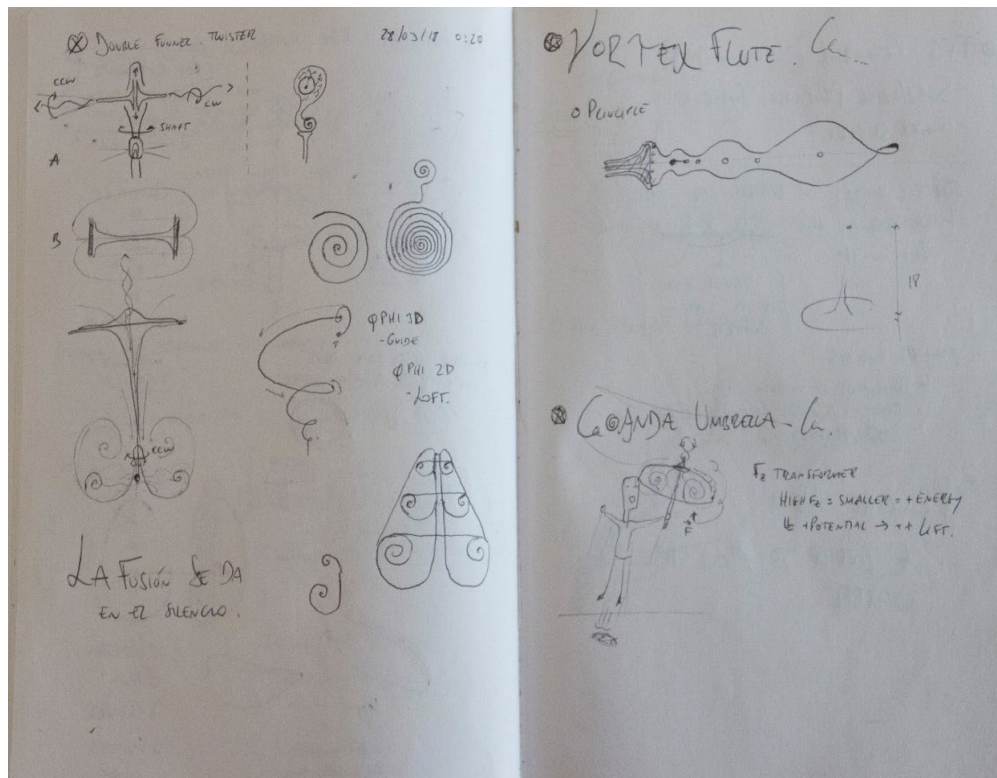 DOUBLE FUNNEL TWISTER
28/03/18 0:20
CCW
CW
SHAFT
A
B
φ PHI 3D
- GUIDE
φ PHI 2D
- LOFT.
CCW
LA FUSIÓN SE DA
EN EL SILENCIO.
VORTEX FLUTE.
PRINCIPLE
18
COANDA UMBRELLA
F
Fz TRANSFORMER
HIGH Fz = SMALLER = + ENERGY
+ POTENTIAL → ++ LIFT.